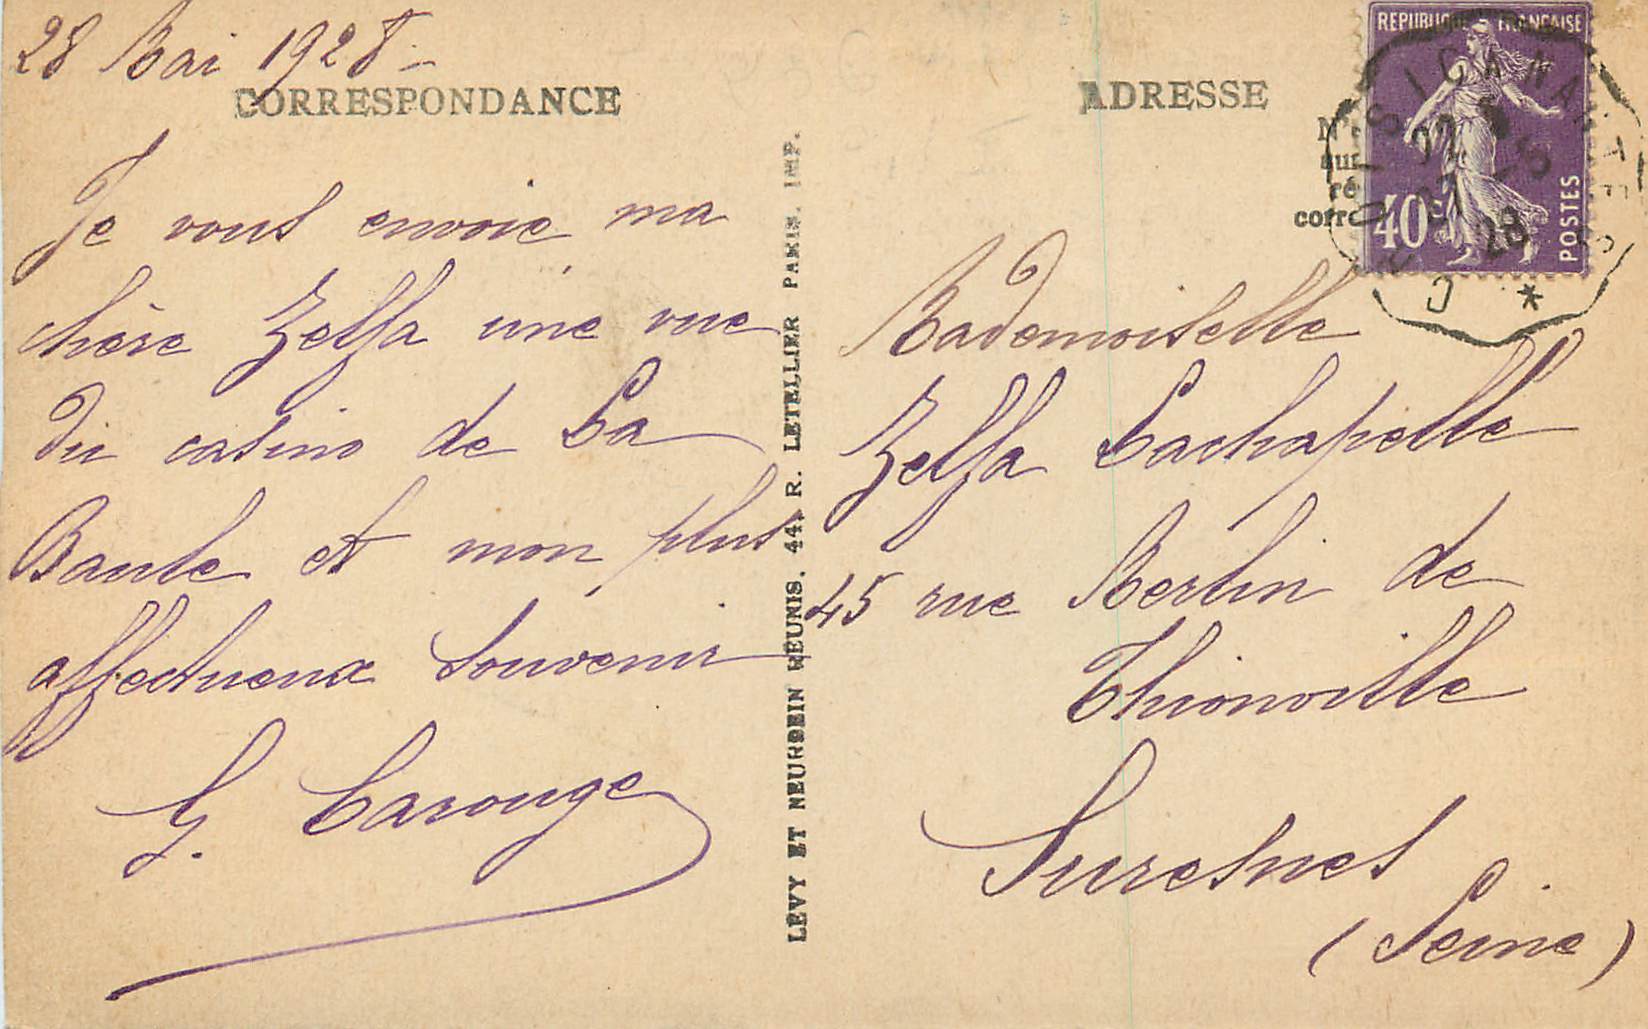 28 Mai 1928
CORRESPONDANCE
Je vous envoie ma
chère Zelfa une vue
du casino de La
Baule et mon plus
affectueux souvenir
G. Carouge
LÉVY ET NEURDEIN RÉUNIS. 44, R. LETELLIER PARIS. IMP.
ADRESSE
REPUBLIQUE FRANÇAISE
40c
POSTES
28
Mademoiselle
Zelfa Lachapelle
45 rue Berlin de
Thionville
Suresnes
(Seine)